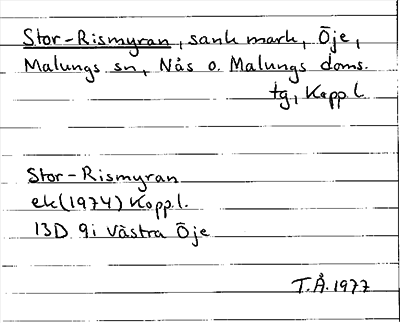 Stor-Rismyran, sank mark, Öje,
Malungs sn, Nås o. Malungs doms.
tg, Kopp.l.
Stor-Rismyran
ek(1974) Kopp.l.
13D 9i Västra Öje
T.Å.1977